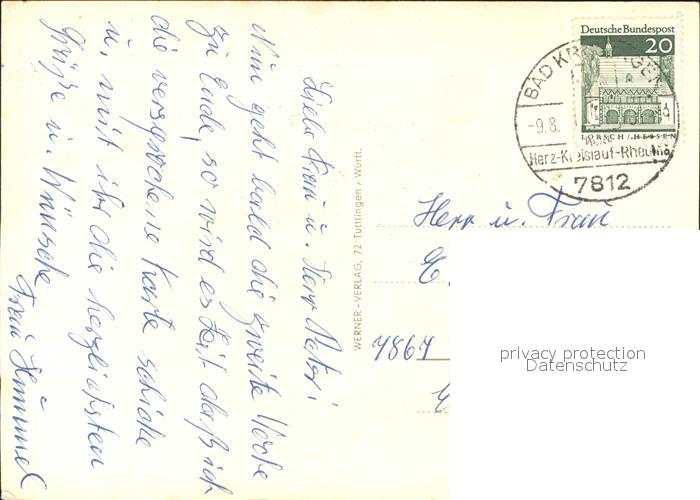 Liebe Frau u. Herr
Nun geht bald die zweite Woche
zu Ende, so wird es Zeit daß ich
die versprochene Karte schicke
u. mit ihr die herzlichsten
Grüße u. Wünsche
Frau Hummel
WERNER - VERLAG, 72 Tuttlingen / Württ.
Deutsche Bundespost
20
LORSCH/HESSEN
BAD KR
-9.8.
Herz-Kreislauf-Rheuma
7812
Herr u. Frau
7867
privacy protection
Datenschutz